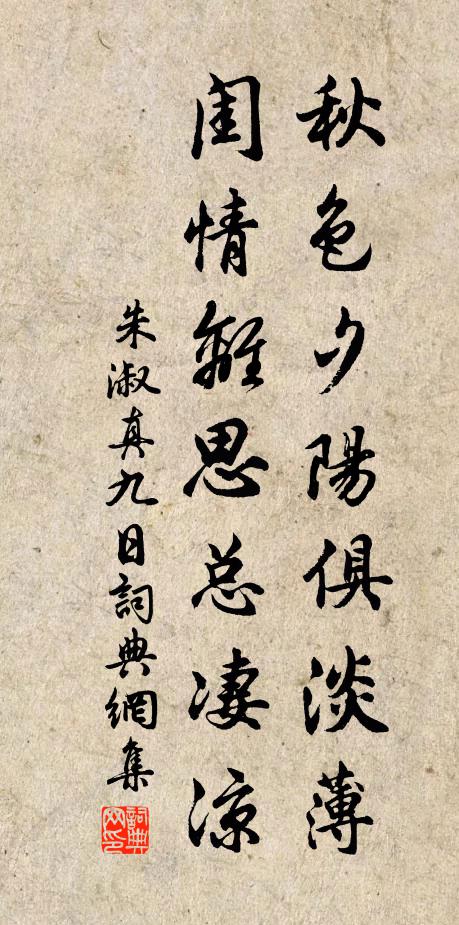 秋色夕陽俱淡薄
閨情離思总凄涼
朱淑真九日詞典網集
詞典网印